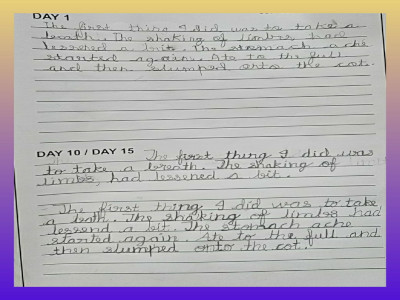 DAY 1
The first thing I did was to take a
bath. The shaking of limbs had
lessened a bit. The stomach ache
started again. Ate to the full
and then slumped onto the cot.
DAY 10 / DAY 15 The first thing I did was
to take a breath. The shaking of
limbs, had lessened a bit.
The first thing I did was to take
a bath. The shaking of limbs had
lessend a bit. The stomach ache
started again. Ate to the full and
then slumped onto the cot.